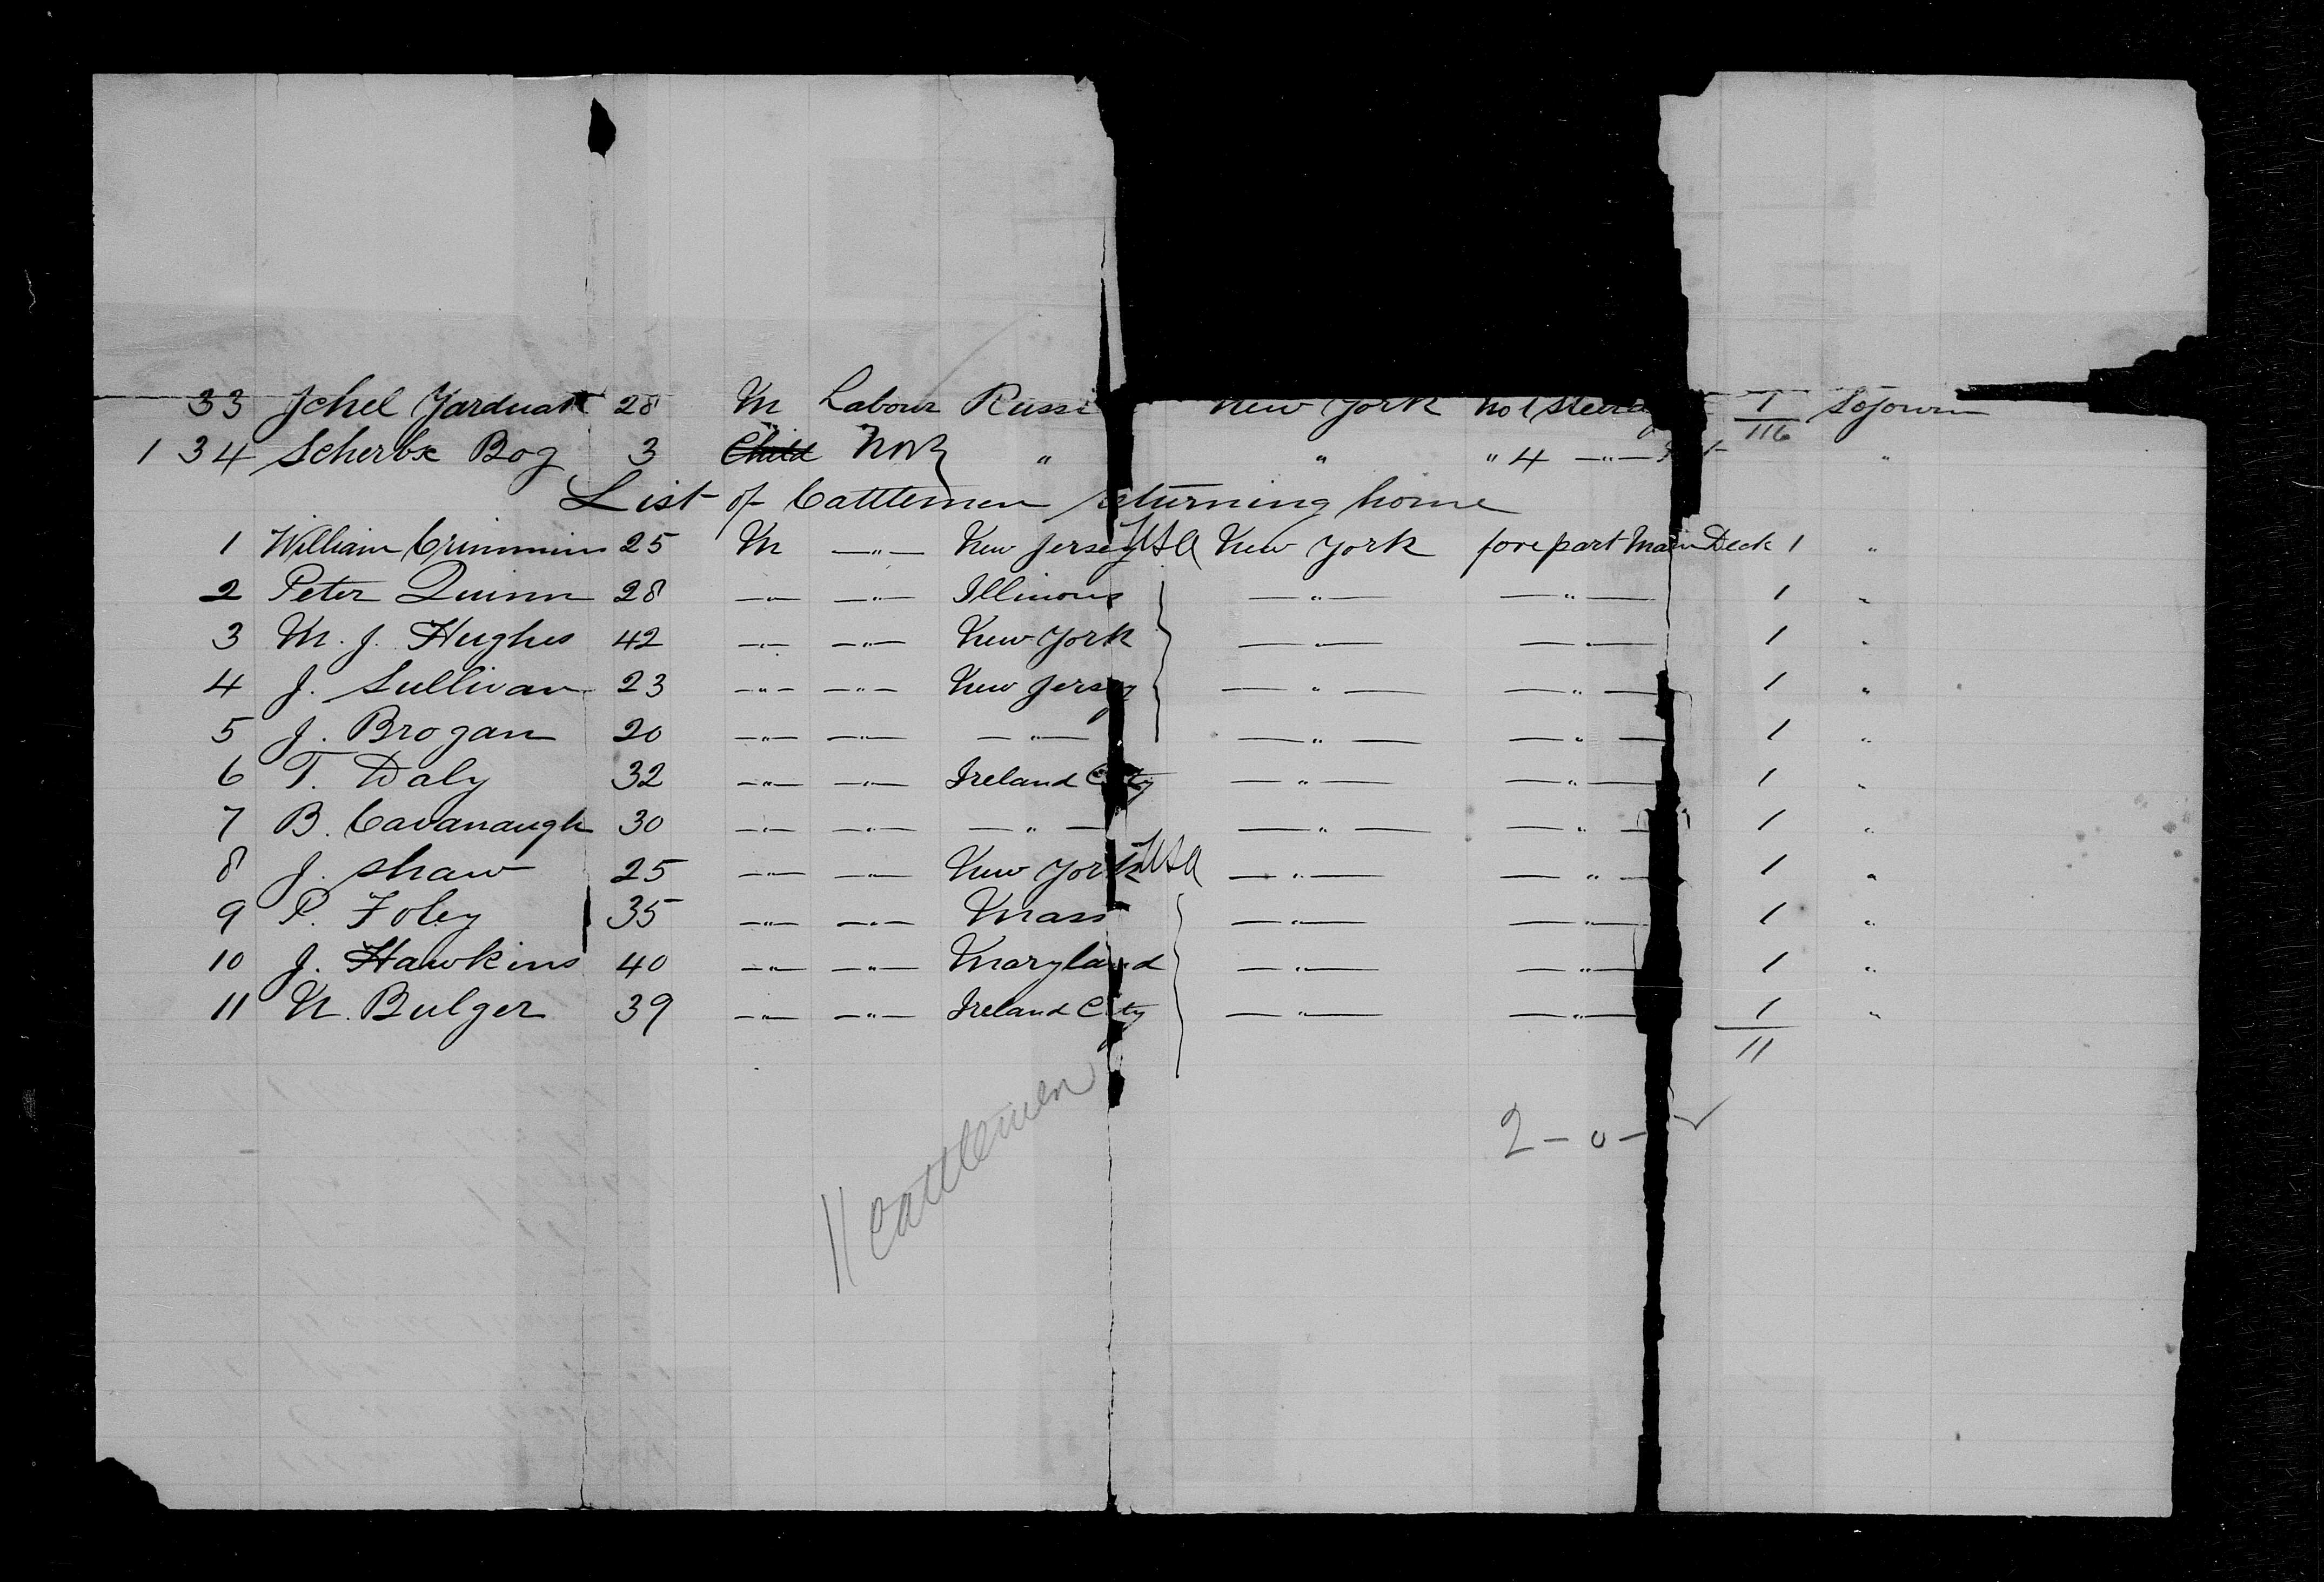 33 Jchel Yarduak 28 M Labour Russi New York No 1 Steera 1 Sojourn
116
1 34 Scherbe Bog 3 " Child " " " 4 —"— "
List of Cattlemen returning home
1 William Crimmins 25 M —"— New Jersey USA New York forepart Main Deck 1 "
2 Peter Quinn 28 —"— —"— Illinois —"— —"— 1 "
3 M. J. Hughes 42 —"— —"— New York —"— —"— 1 "
4 J. Sullivan 23 —"— —"— New Jersey —"— —"— 1 "
5 J. Brogan 20 —"— —"— —"— —"— —"— 1 "
6 T. Daly 32 —"— —"— Ireland City —"— —"— 1 "
7 B. Cavanaugh 30 —"— —"— —"— —"— —"— 1 "
8 J. Shaw 25 —"— —"— New York USA —"— —"— 1 "
9 P. Foley 35 —"— —"— Mass —"— —"— 1 "
10 J. Hawkins 40 —"— —"— Maryland —"— —"— 1 "
11 N. Bulger 39 —"— —"— Ireland City —"— —"— 1 "
11
2 – 0 –
11 Cattlemen